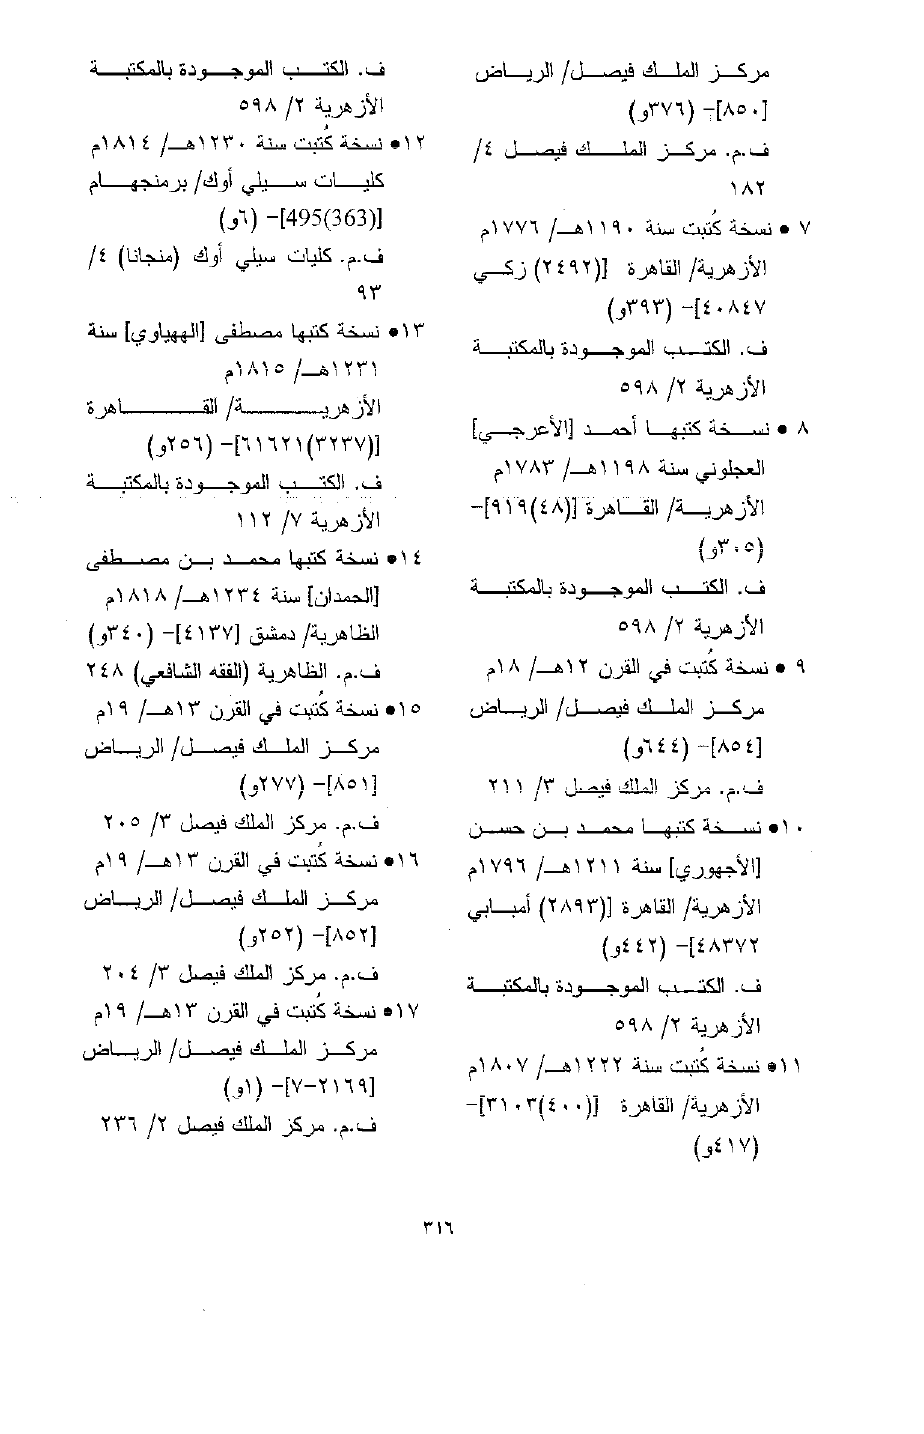 مركز الملك فيصل/ الرياض
[٨٥٠]- (٣٧٦و)
ف.م. مركز الملك فيصل ٤/
١٨٢
٧ • نسخة كُتبت سنة ١١٩٠هـ/ ١٧٧٦م
الأزهرية/ القاهرة [(٢٤٩٢) زكي
٤٠٨٤٧]- (٣٩٣و)
ف. الكتب الموجودة بالمكتبة
الأزهرية ٢/ ٥٩٨
٨ • نسخة كتبها أحمد [الأعرجي]
العجلوني سنة ١١٩٨هـ/ ١٧٨٣م
الأزهرية/ القاهرة [(٤٨)٩١٩]-
(٣٠٥و)
ف. الكتب الموجودة بالمكتبة
الأزهرية ٢/ ٥٩٨
٩ • نسخة كُتبت في القرن ١٢هـ/ ١٨م
مركز الملك فيصل/ الرياض
[٨٥٤]- (٦٤٤و)
ف.م. مركز الملك فيصل ٣/ ٢١١
١٠• نسخة كتبها محمد بن حسن
[الأجهوري] سنة ١٢١١هـ/ ١٧٩٦م
الأزهرية/ القاهرة [(٢٨٩٣) أمبابي
٤٨٣٧٢]- (٤٤٢و)
ف. الكتب الموجودة بالمكتبة
الأزهرية ٢/ ٥٩٨
١١• نسخة كُتبت سنة ١٢٢٢هـ/ ١٨٠٧م
الأزهرية/ القاهرة [(٤٠٠)٣١٠٣]-
(٤١٧و)
ف. الكتب الموجودة بالمكتبة
الأزهرية ٢/ ٥٩٨
١٢• نسخة كُتبت سنة ١٢٣٠هـ/ ١٨١٤م
كليات سيلي أوك/ برمنجهام
[495(363)]- (٦و)
ف.م. كليات سيلي أوك (منجانا) ٤/
٩٣
١٣• نسخة كتبها مصطفى [الههياوي] سنة
١٢٣١هـ/ ١٨١٥م
الأزهرية/ القاهرة
[(٣٢٣٧)٦١٦٢١]- (٢٥٦و)
ف. الكتب الموجودة بالمكتبة
الأزهرية ٧/ ١١٢
١٤• نسخة كتبها محمد بن مصطفى
[الحمدان] سنة ١٢٣٤هـ/ ١٨١٨م
الظاهرية/ دمشق [٤١٣٧]- (٣٤٠و)
ف.م. الظاهرية (الفقه الشافعي) ٢٤٨
١٥• نسخة كُتبت في القرن ١٣هـ/ ١٩م
مركز الملك فيصل/ الرياض
[٨٥١]- (٢٧٧و)
ف.م. مركز الملك فيصل ٣/ ٢٠٥
١٦• نسخة كُتبت في القرن ١٣هـ/ ١٩م
مركز الملك فيصل/ الرياض
[٨٥٢]- (٢٥٢و)
ف.م. مركز الملك فيصل ٣/ ٢٠٤
١٧• نسخة كُتبت في القرن ١٣هـ/ ١٩م
مركز الملك فيصل/ الرياض
[٢١٦٩-٧]- (١و)
ف.م. مركز الملك فيصل ٢/ ٢٣٦
٣١٦